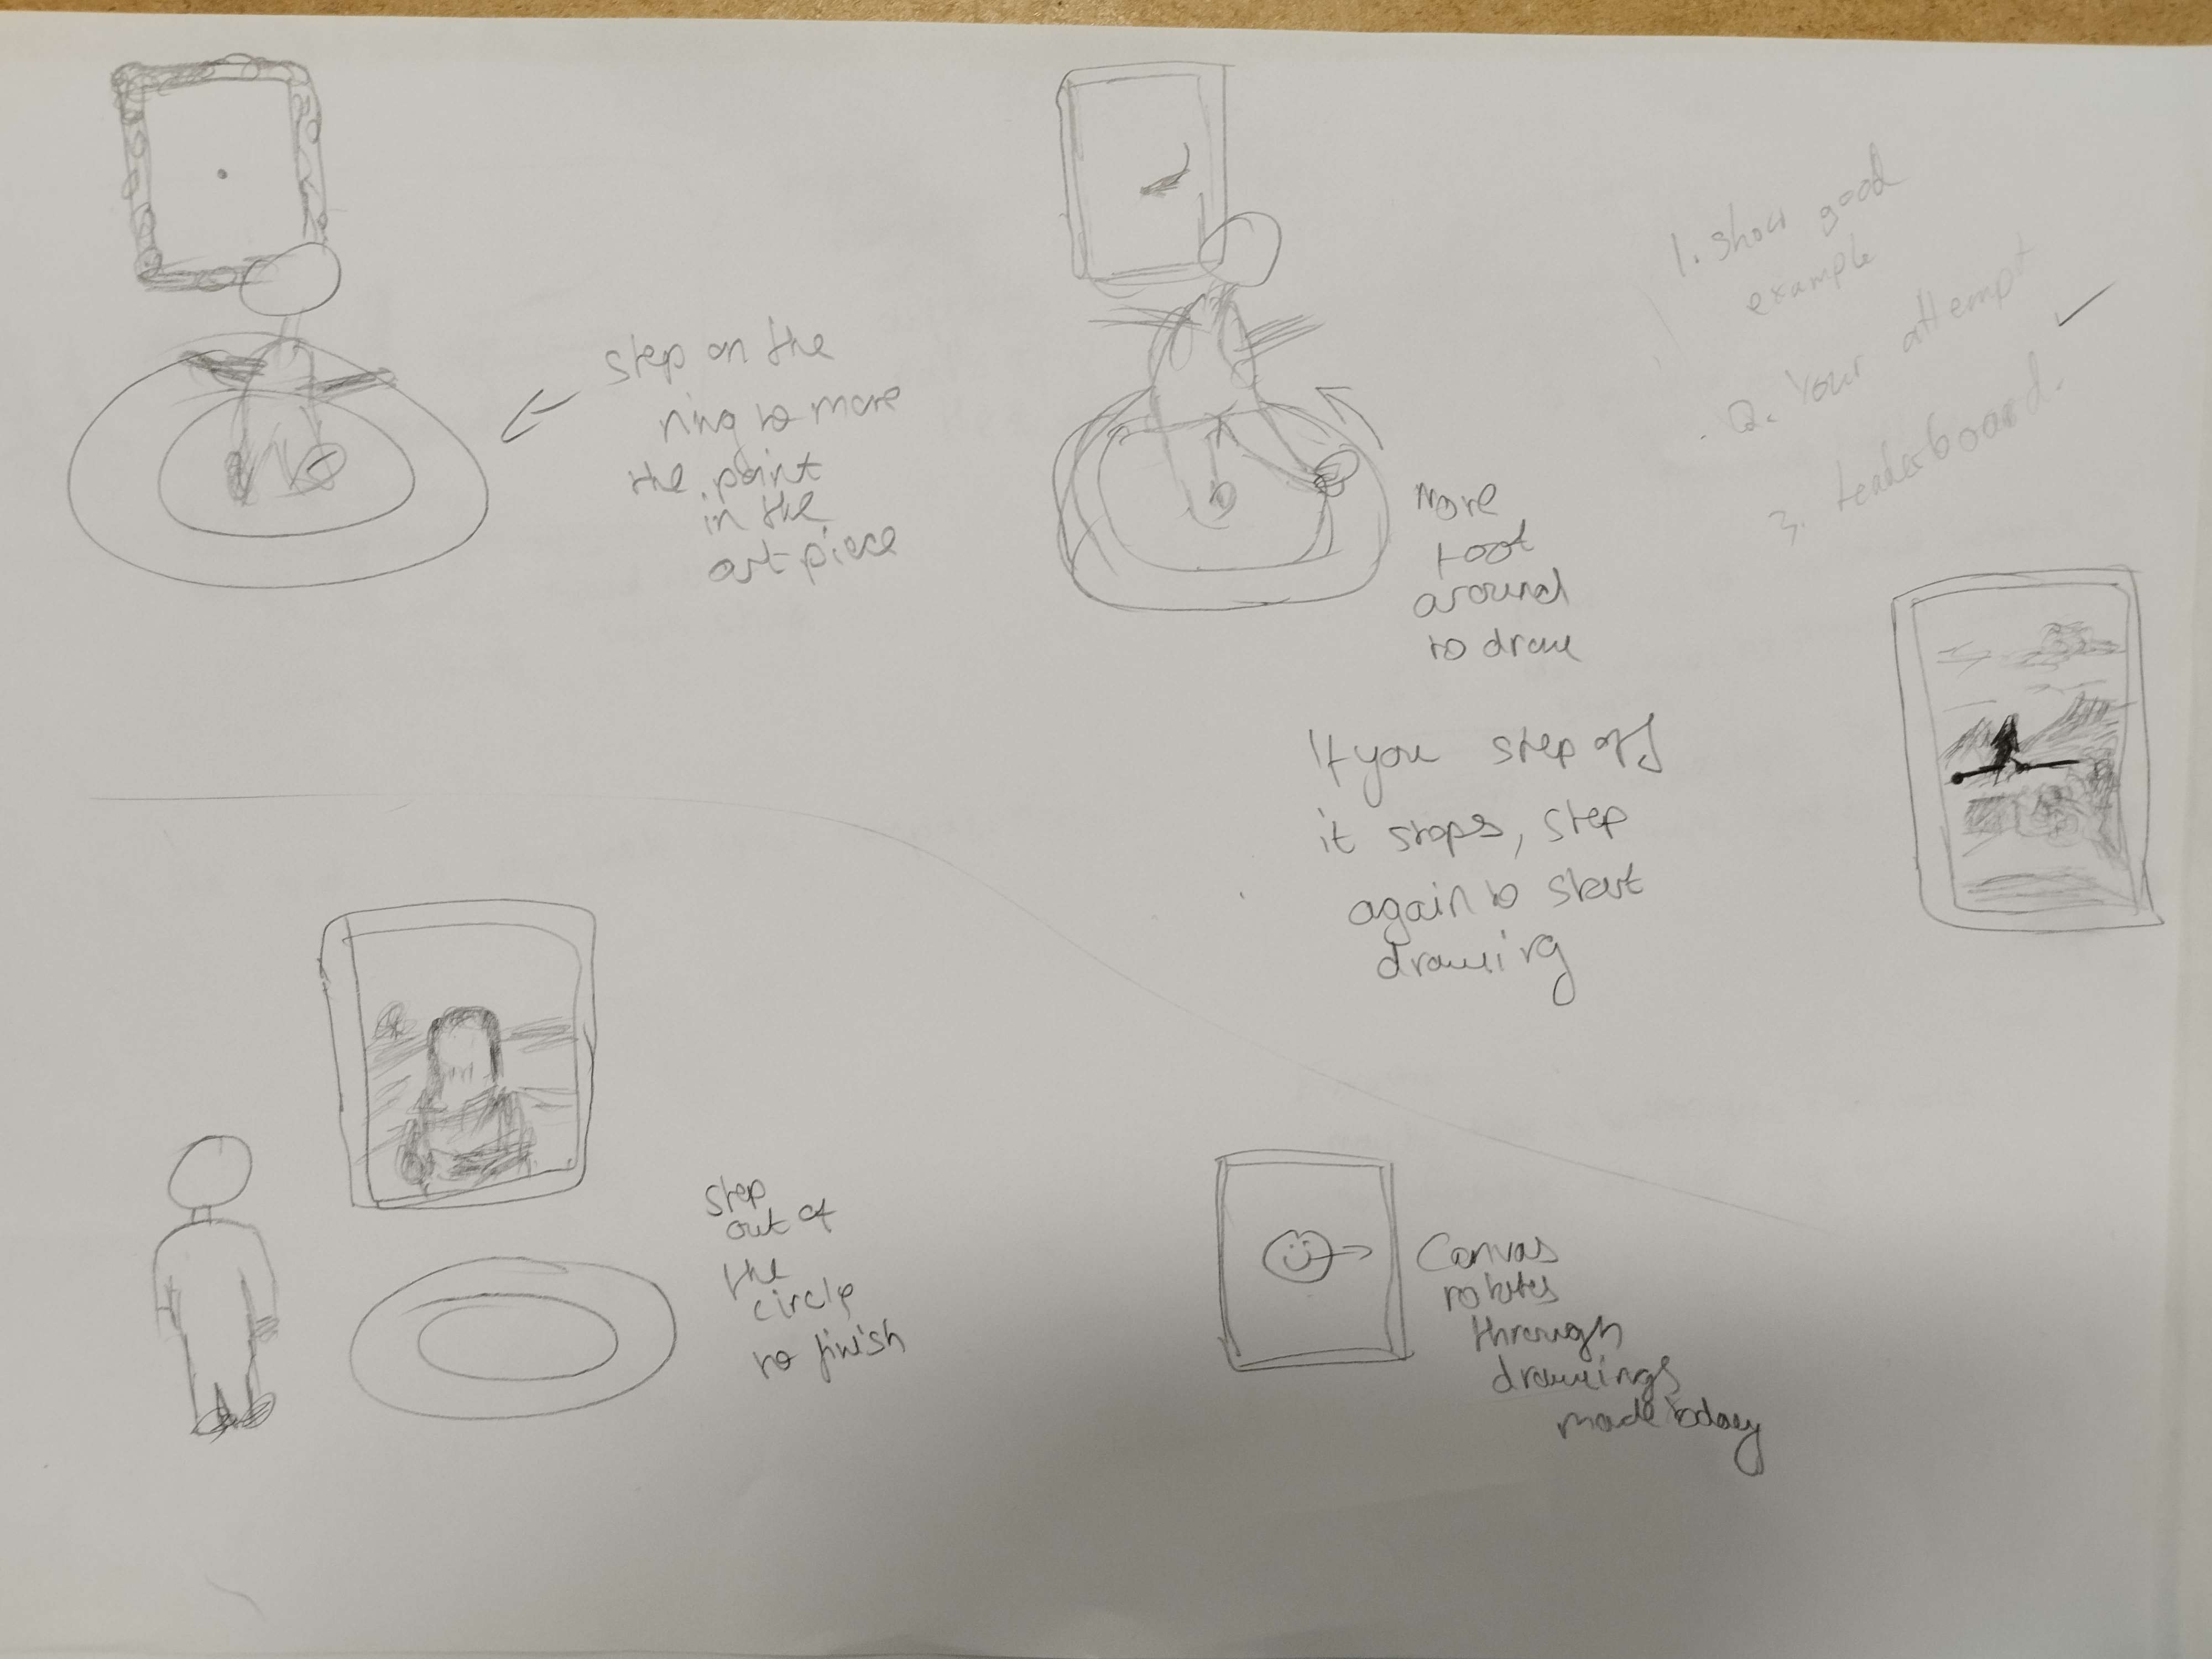 step on the
ring to move
the point
in the
art piece
Move
foot
around
to draw
1. Show good
example
2. Your attempt
3. Leaderboard.
If you step off
it stops, step
again to start
drawing
step
out of
the
circle
to finish
Canvas
rotates
through
drawings
made today